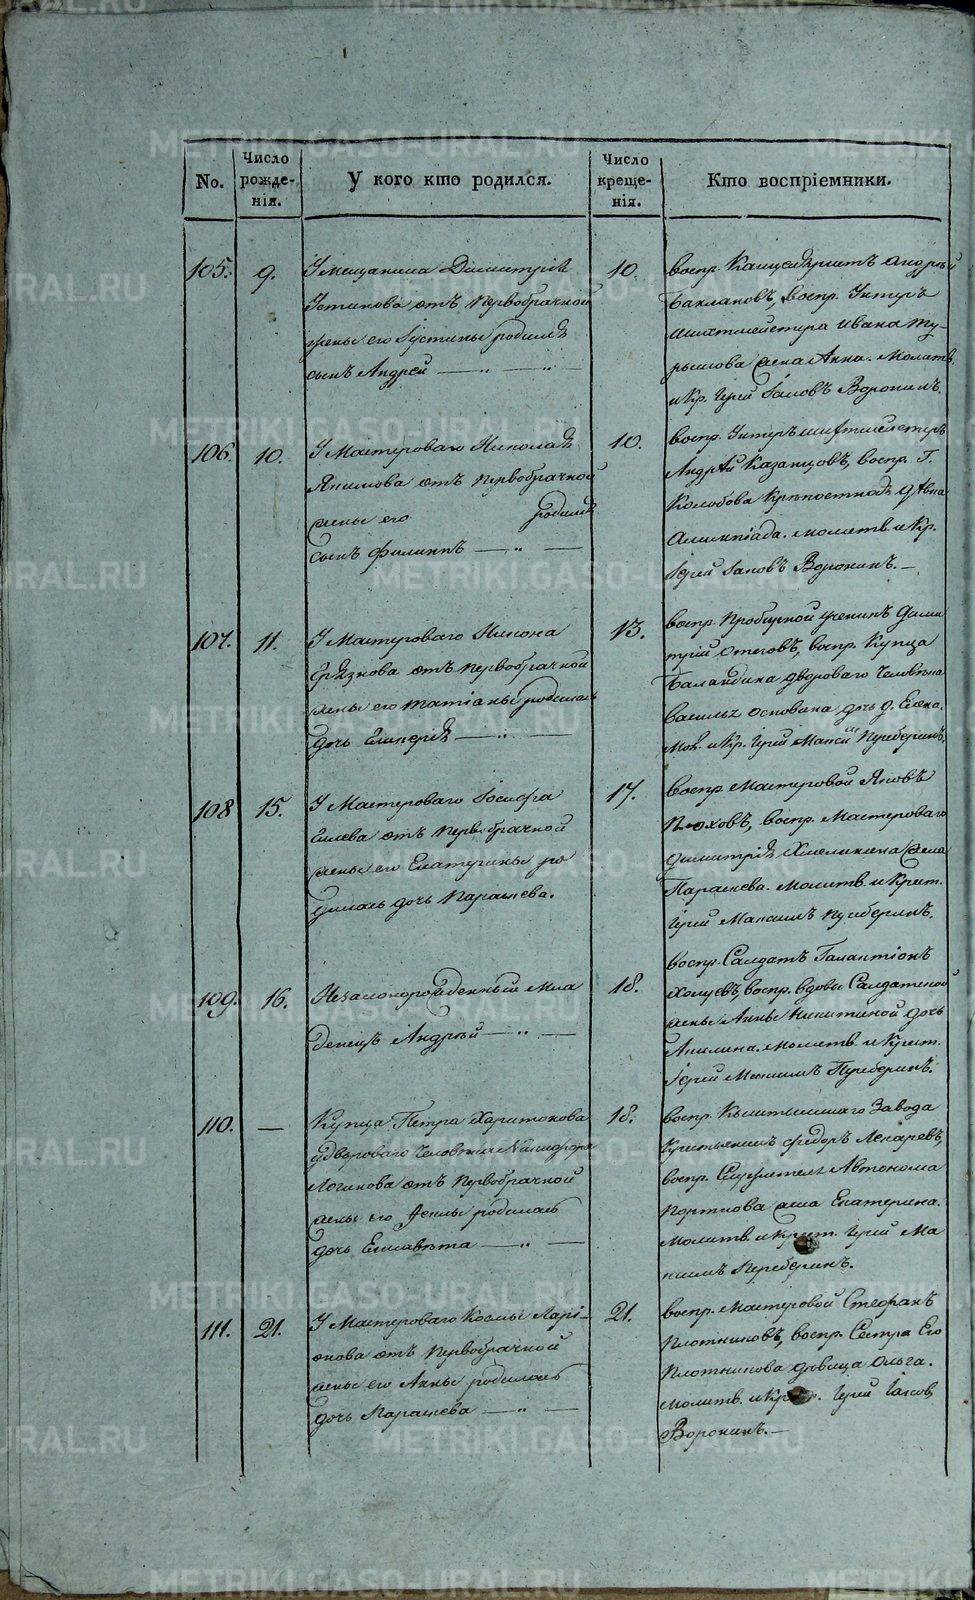 No.
Число рожде-нія.
У кого кто родился.
Число креще-нія.
Кто воспріемники.
105.
9.
У мещанина Димитрія
Устинова отъ первобрачной
жены его Іустины родился
сынъ Андрей
10.
воспр. Канцеляристъ Андрей
Баклановъ, воспр. Унтеръ
шихтмейстера Ивана Ту-
рыгина жена Анна. Молитв.
и Кр. Іерей Іаковъ Воронинъ.
106.
10.
У Мастероваго Николая
Якимова отъ первобрачной
жены его родился
сынъ Филиппъ
10.
воспр. Унтеръ шихтмейстеръ
Андрей Казанцовъ, воспр. Г.
Колобова крѣпостная дѣвка
Алимпіада. молитв. и Кр.
Іерей Іаковъ Воронинъ.
107.
11.
У Мастероваго Никона
Грязнова отъ первобрачной
жены его Татіаны родилась
дочь Гликерія
13.
воспр. Пробирной ученикъ Дими
трій Отеговъ, воспр. Купца
Баландина двороваго человѣка
василья дочь д. Елена.
Мол. и Кр. Іерей Максим
108
15.
У Мастероваго Іосифа
отъ первобрачной
жены его Екатерины ро
дилась дочь Параскева.
17.
воспр. Мастеровой Яковъ
воспр. Мастероваго
Димитрія Хмелинина жена
Параскева. Молитв. и Крест.
Іерей Максимъ
109.
16.
Незаконорожденный мла
денецъ Андрей
18.
воспр. Салдатъ Галактіонъ
воспр. вдовы Салдатской
жены Анны Никитиной дочь
Акилина. молитв. и Крест.
Іерей Максимъ
110.
—
Купца Петра Харитонова
удвороваго человѣка Никифора
Логинова отъ первобрачной
жены его родилась
дочь Елисавета
18.
воспр. Кыштымскаго Завода
Крестьянинъ Федоръ
воспр. Служителя Автонома
Портнова жена Екатерина.
Молитв. и Крест. Іерей Ма
ксимъ
111.
21.
У Мастероваго Космы Ларі-
онова отъ первобрачной
жены его Анны родилась
дочь Параскева
21.
воспр. Мастеровой Стефанъ
Плотниковъ, воспр. Сестра Его
Плотникова дѣвица Ольга.
Молитв. и Крест. Іерей Іаков
Воронинъ.
METRIKI.GASO-URAL.RU